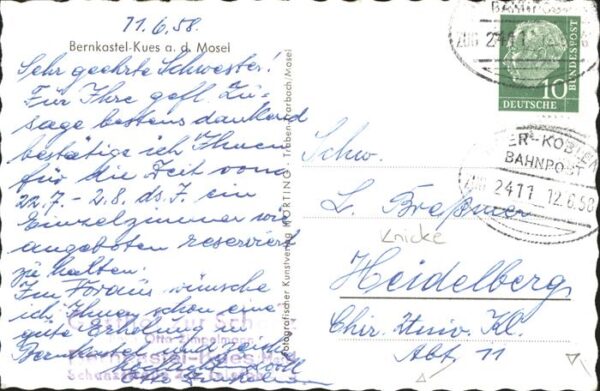 11.6.58.
Bernkastel-Kues a. d. Mosel
Sehr geehrte Schwester!
Für Ihre gefl. Zu-
sage bestens dankend
bestätige ich Ihnen
für die Zeit vom
22.7. - 2.8. ds. J. ein
Einzelzimmer wie
angeboten reserviert
zu halten.
Im Voraus wünsche
ich Ihnen schon eine
gute Erholung
Bernkastel
Fotografischer Kunstverlag HORTING - Traben-Trarbach/Mosel
BAHNPOST
ZUG 2411 12.6.58
10
DEUTSCHE
BUNDESPOST
BAHNPOST
ZUG 2411 12.6.58
Schw.
L. Braßmer
Knicke
Heidelberg
Chir. Univ. Kl.
Abt. 11